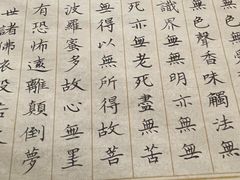 無色聲香味觸法無
識界無無明亦無無
死亦無老死盡無苦
無得以無所得故菩
波羅蜜多故心無罣
有恐怖遠離顛倒夢
世諸佛依般若